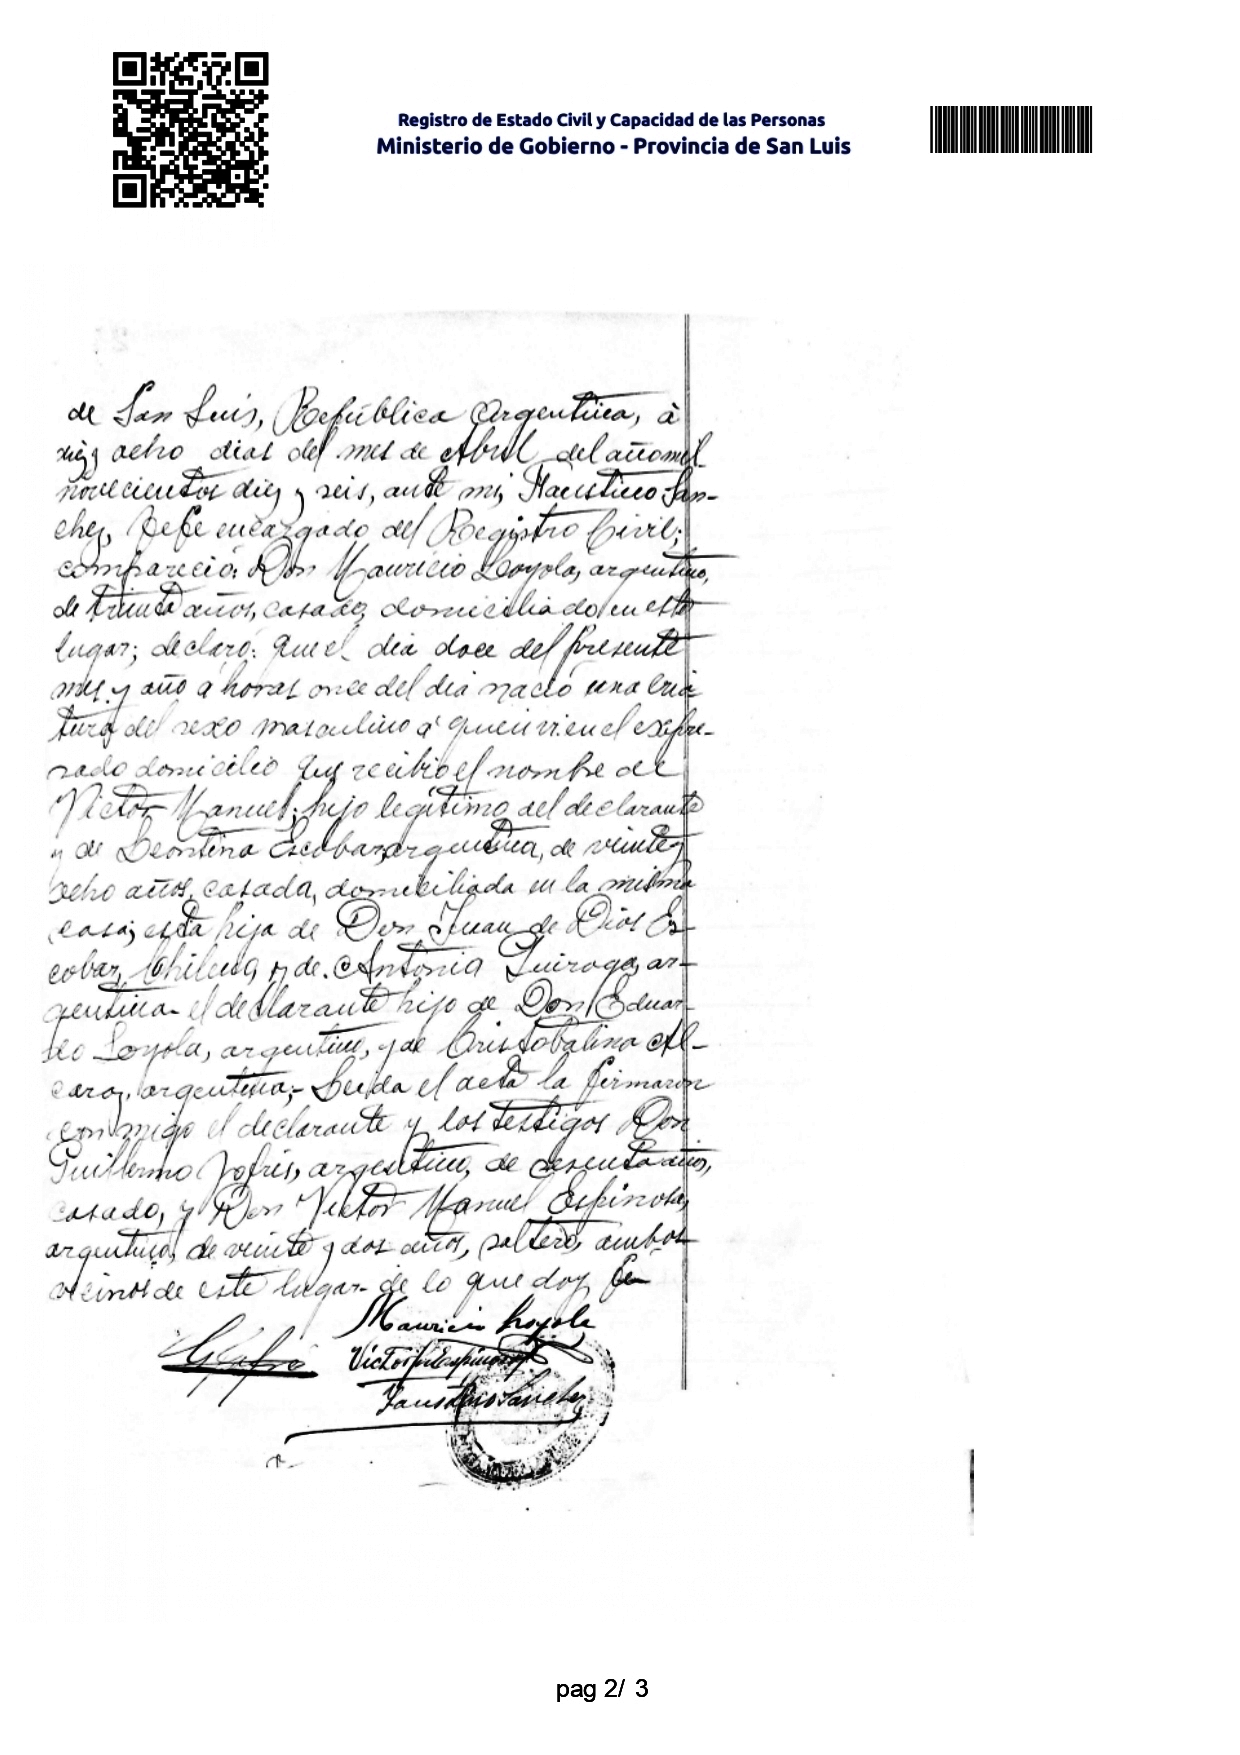 Registro de Estado Civil y Capacidad de las Personas
Ministerio de Gobierno - Provincia de San Luis
de San Luis, República Argentina, à
diez y ocho dias del mes de Abril del año mil
novecientos diez y seis, ante mi, Faustino San-
chez, Jefe encargado del Registro Civil;
compareció: Don Mauricio Loyola, argentino,
de treinta años, casado, domiciliado en este
lugar; declaró: que el dia doce del presente
mes y año a horas once del dia nació una cria
tura del sexo masculino á quien vi en el expre-
sado domicilio que recibió el nombre de
Victor Manuel; hijo legítimo del declarante
y de Leontina Escobar, argentina, de veinte y
ocho años, casada, domiciliada en la misma
casa; esta hija de Don Juan de Dios Es-
cobar, Chileno, y de Antonia Quiroga, ar-
gentina- el declarante hijo de Don Eduar-
do Loyola, argentino, y de Cristobalina Al-
caraz, argentina;- Leida el acta la firmaron
conmigo el declarante y los testigos Don
Guillermo Jofré, argentino, de sesenta años,
casado, y Don Victor Manuel Espinosa,
argentino, de veinte y dos años, soltero, ambos
vecinos de este lugar- de lo que doy fe
Mauricio Loyola
G Jofré
Victor M Espinosa
Faustino Sanchez
pag 2/ 3